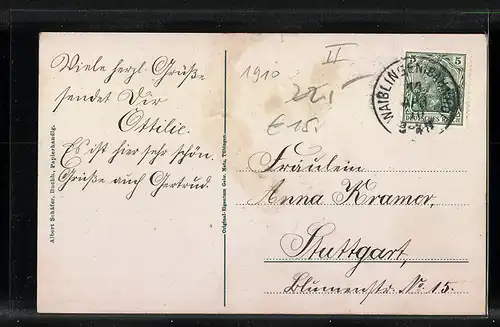 Viele herzl. Grüße
sendet Dir
Ottilie.
Es ist hier sehr schön.
Grüße auch Gertrud.
Albert Schäfer, Buchh., Papierhandlg.
Original-Eigentum Gebr. Metz, Tübingen.
1910
II
22,-
€ 15.-
5
DEUTSCHES
WAIBLINGEN
Fräulein
Anna Kramer,
Stuttgart,
Blumenstr. No. 15.